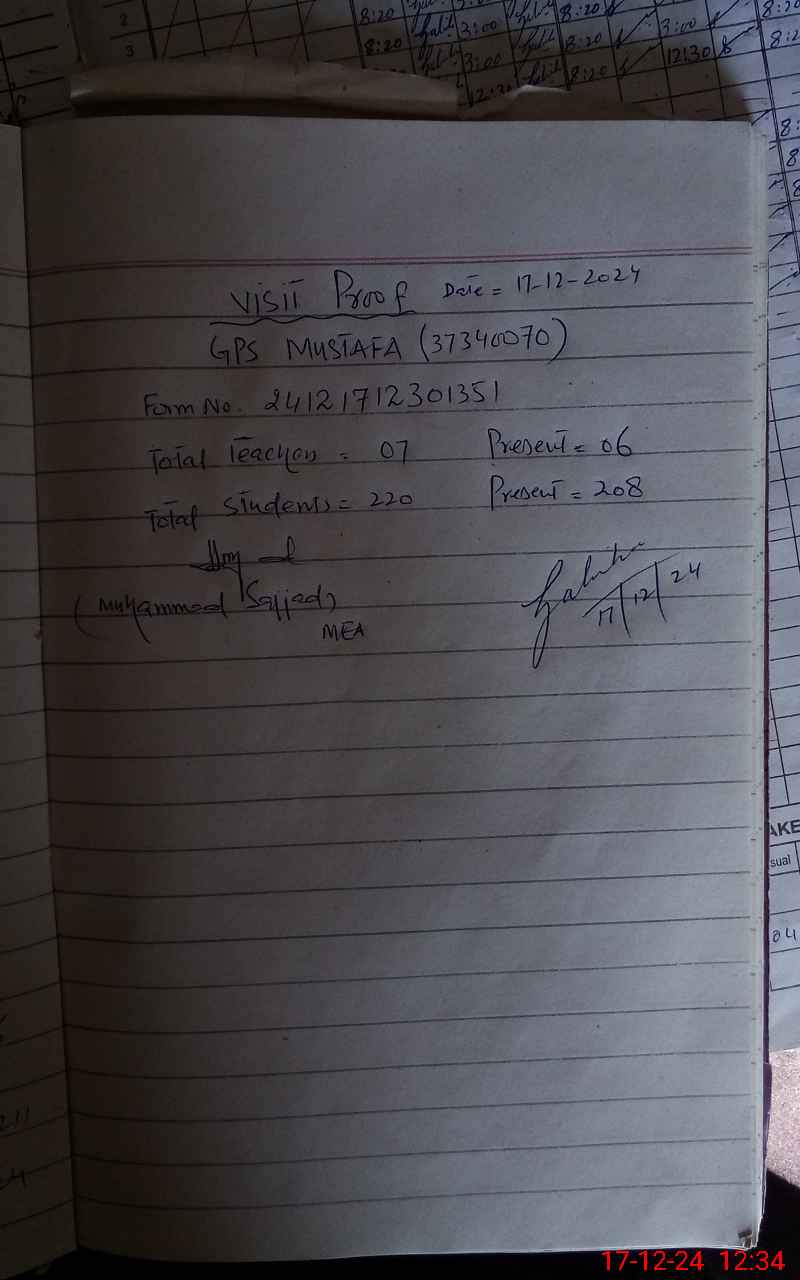 2 8:20 3:00 8:20 3:00 8:20
3 8:20 3:00 8:20 12:30 8:2
12:3 8:20
Visit Proof Date = 17-12-2024
GPS MUSTAFA (37340070)
Form No. 24121712301351
Total Teachers = 07 Present = 06
Total Students = 220 Present = 208
(Muhammad Sajjad)
MEA
17/12/24
AKE
sual
04
17-12-24 12:34